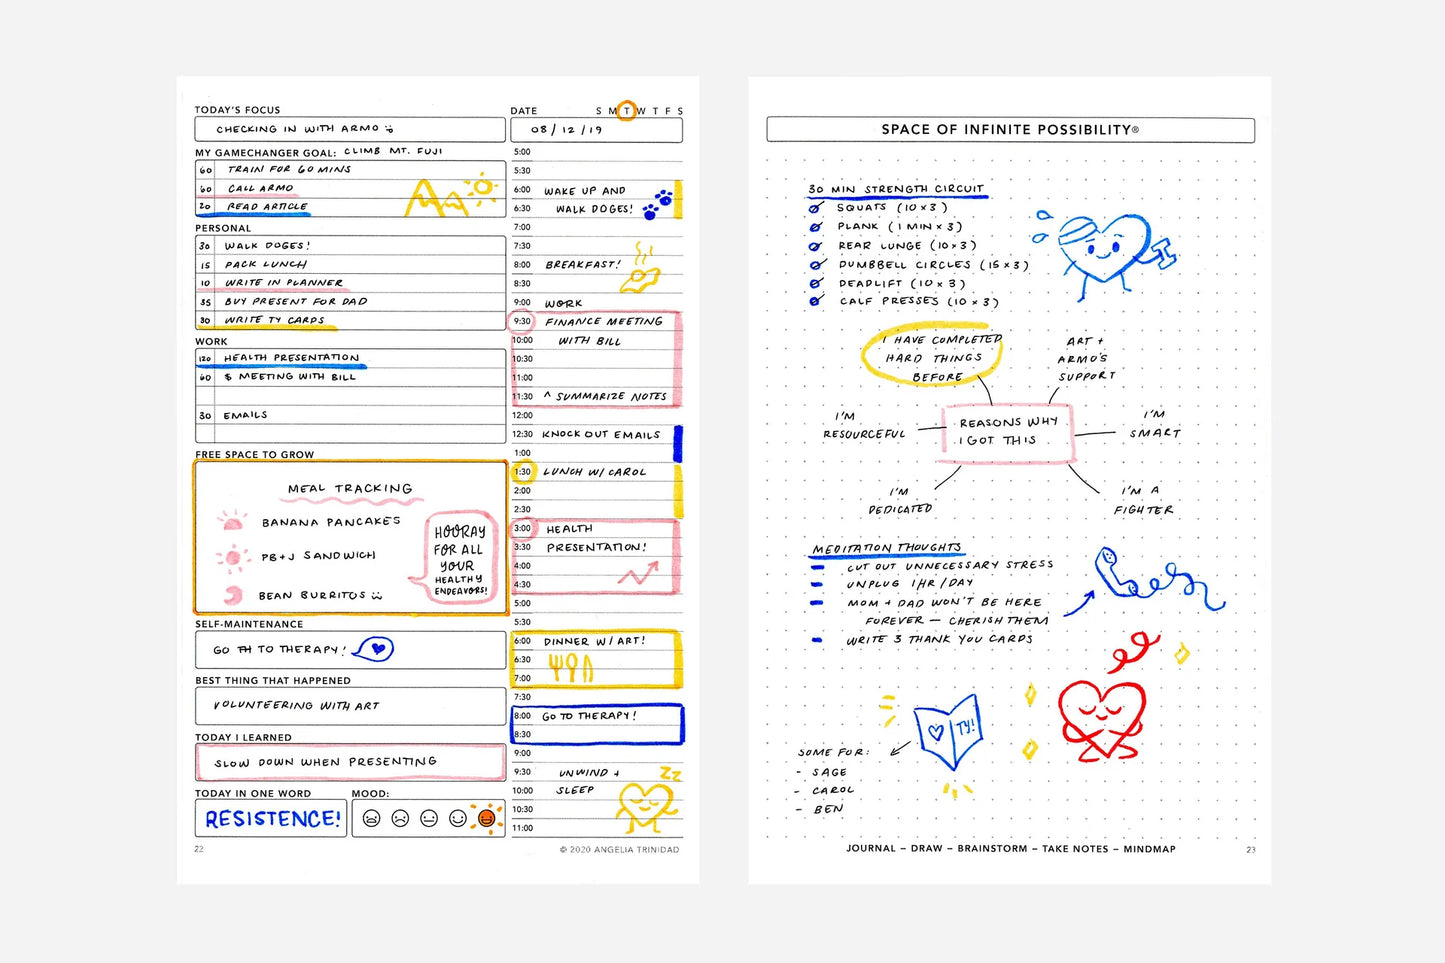 TODAY'S FOCUS
CHECKING IN WITH ARMO
MY GAMECHANGER GOAL: CLIMB MT. FUJI
60 TRAIN FOR 60 MINS
60 CALL ARMO
20 READ ARTICLE
PERSONAL
30 WALK DOGES!
15 PACK LUNCH
10 WRITE IN PLANNER
35 BUY PRESENT FOR DAD
30 WRITE TY CARDS
WORK
120 HEALTH PRESENTATION
60 $ MEETING WITH BILL
30 EMAILS
FREE SPACE TO GROW
MEAL TRACKING
BANANA PANCAKES
PB+J SANDWICH
BEAN BURRITOS
HOORAY
FOR ALL
YOUR
HEALTHY
ENDEAVORS!
SELF-MAINTENANCE
GO TO THERAPY!
BEST THING THAT HAPPENED
VOLUNTEERING WITH ART
TODAY I LEARNED
SLOW DOWN WHEN PRESENTING
TODAY IN ONE WORD
RESISTENCE!
MOOD:
22
DATE S M T W T F S
08/12/19
5:00
5:30
6:00 WAKE UP AND
6:30 WALK DOGES!
7:00
7:30
8:00 BREAKFAST!
8:30
9:00 WORK
9:30 FINANCE MEETING
10:00 WITH BILL
10:30
11:00
11:30 ^ SUMMARIZE NOTES
12:00
12:30 KNOCK OUT EMAILS
1:00
1:30 LUNCH W/ CAROL
2:00
2:30
3:00 HEALTH
3:30 PRESENTATION!
4:00
4:30
5:00
5:30
6:00 DINNER W/ ART!
6:30
7:00
7:30
8:00 GO TO THERAPY!
8:30
9:00
9:30 UNWIND + ZZ
10:00 SLEEP
10:30
11:00
© 2020 ANGELIA TRINIDAD
SPACE OF INFINITE POSSIBILITY®
30 MIN STRENGTH CIRCUIT
SQUATS (10×3)
PLANK (1 MIN × 3)
REAR LUNGE (10×3)
DUMBBELL CIRCLES (15×3)
DEADLIFT (10×3)
CALF PRESSES (10×3)
I HAVE COMPLETED
HARD THINGS
BEFORE
ART +
ARMO'S
SUPPORT
I'M
RESOURCEFUL
REASONS WHY
I GOT THIS
I'M
SMART
I'M
DEDICATED
I'M A
FIGHTER
MEDITATION THOUGHTS
CUT OUT UNNECESSARY STRESS
UNPLUG 1HR/DAY
MOM + DAD WON'T BE HERE
FOREVER — CHERISH THEM
WRITE 3 THANK YOU CARDS
TY!
SOME FOR:
- SAGE
- CAROL
- BEN
JOURNAL – DRAW – BRAINSTORM – TAKE NOTES – MINDMAP
23